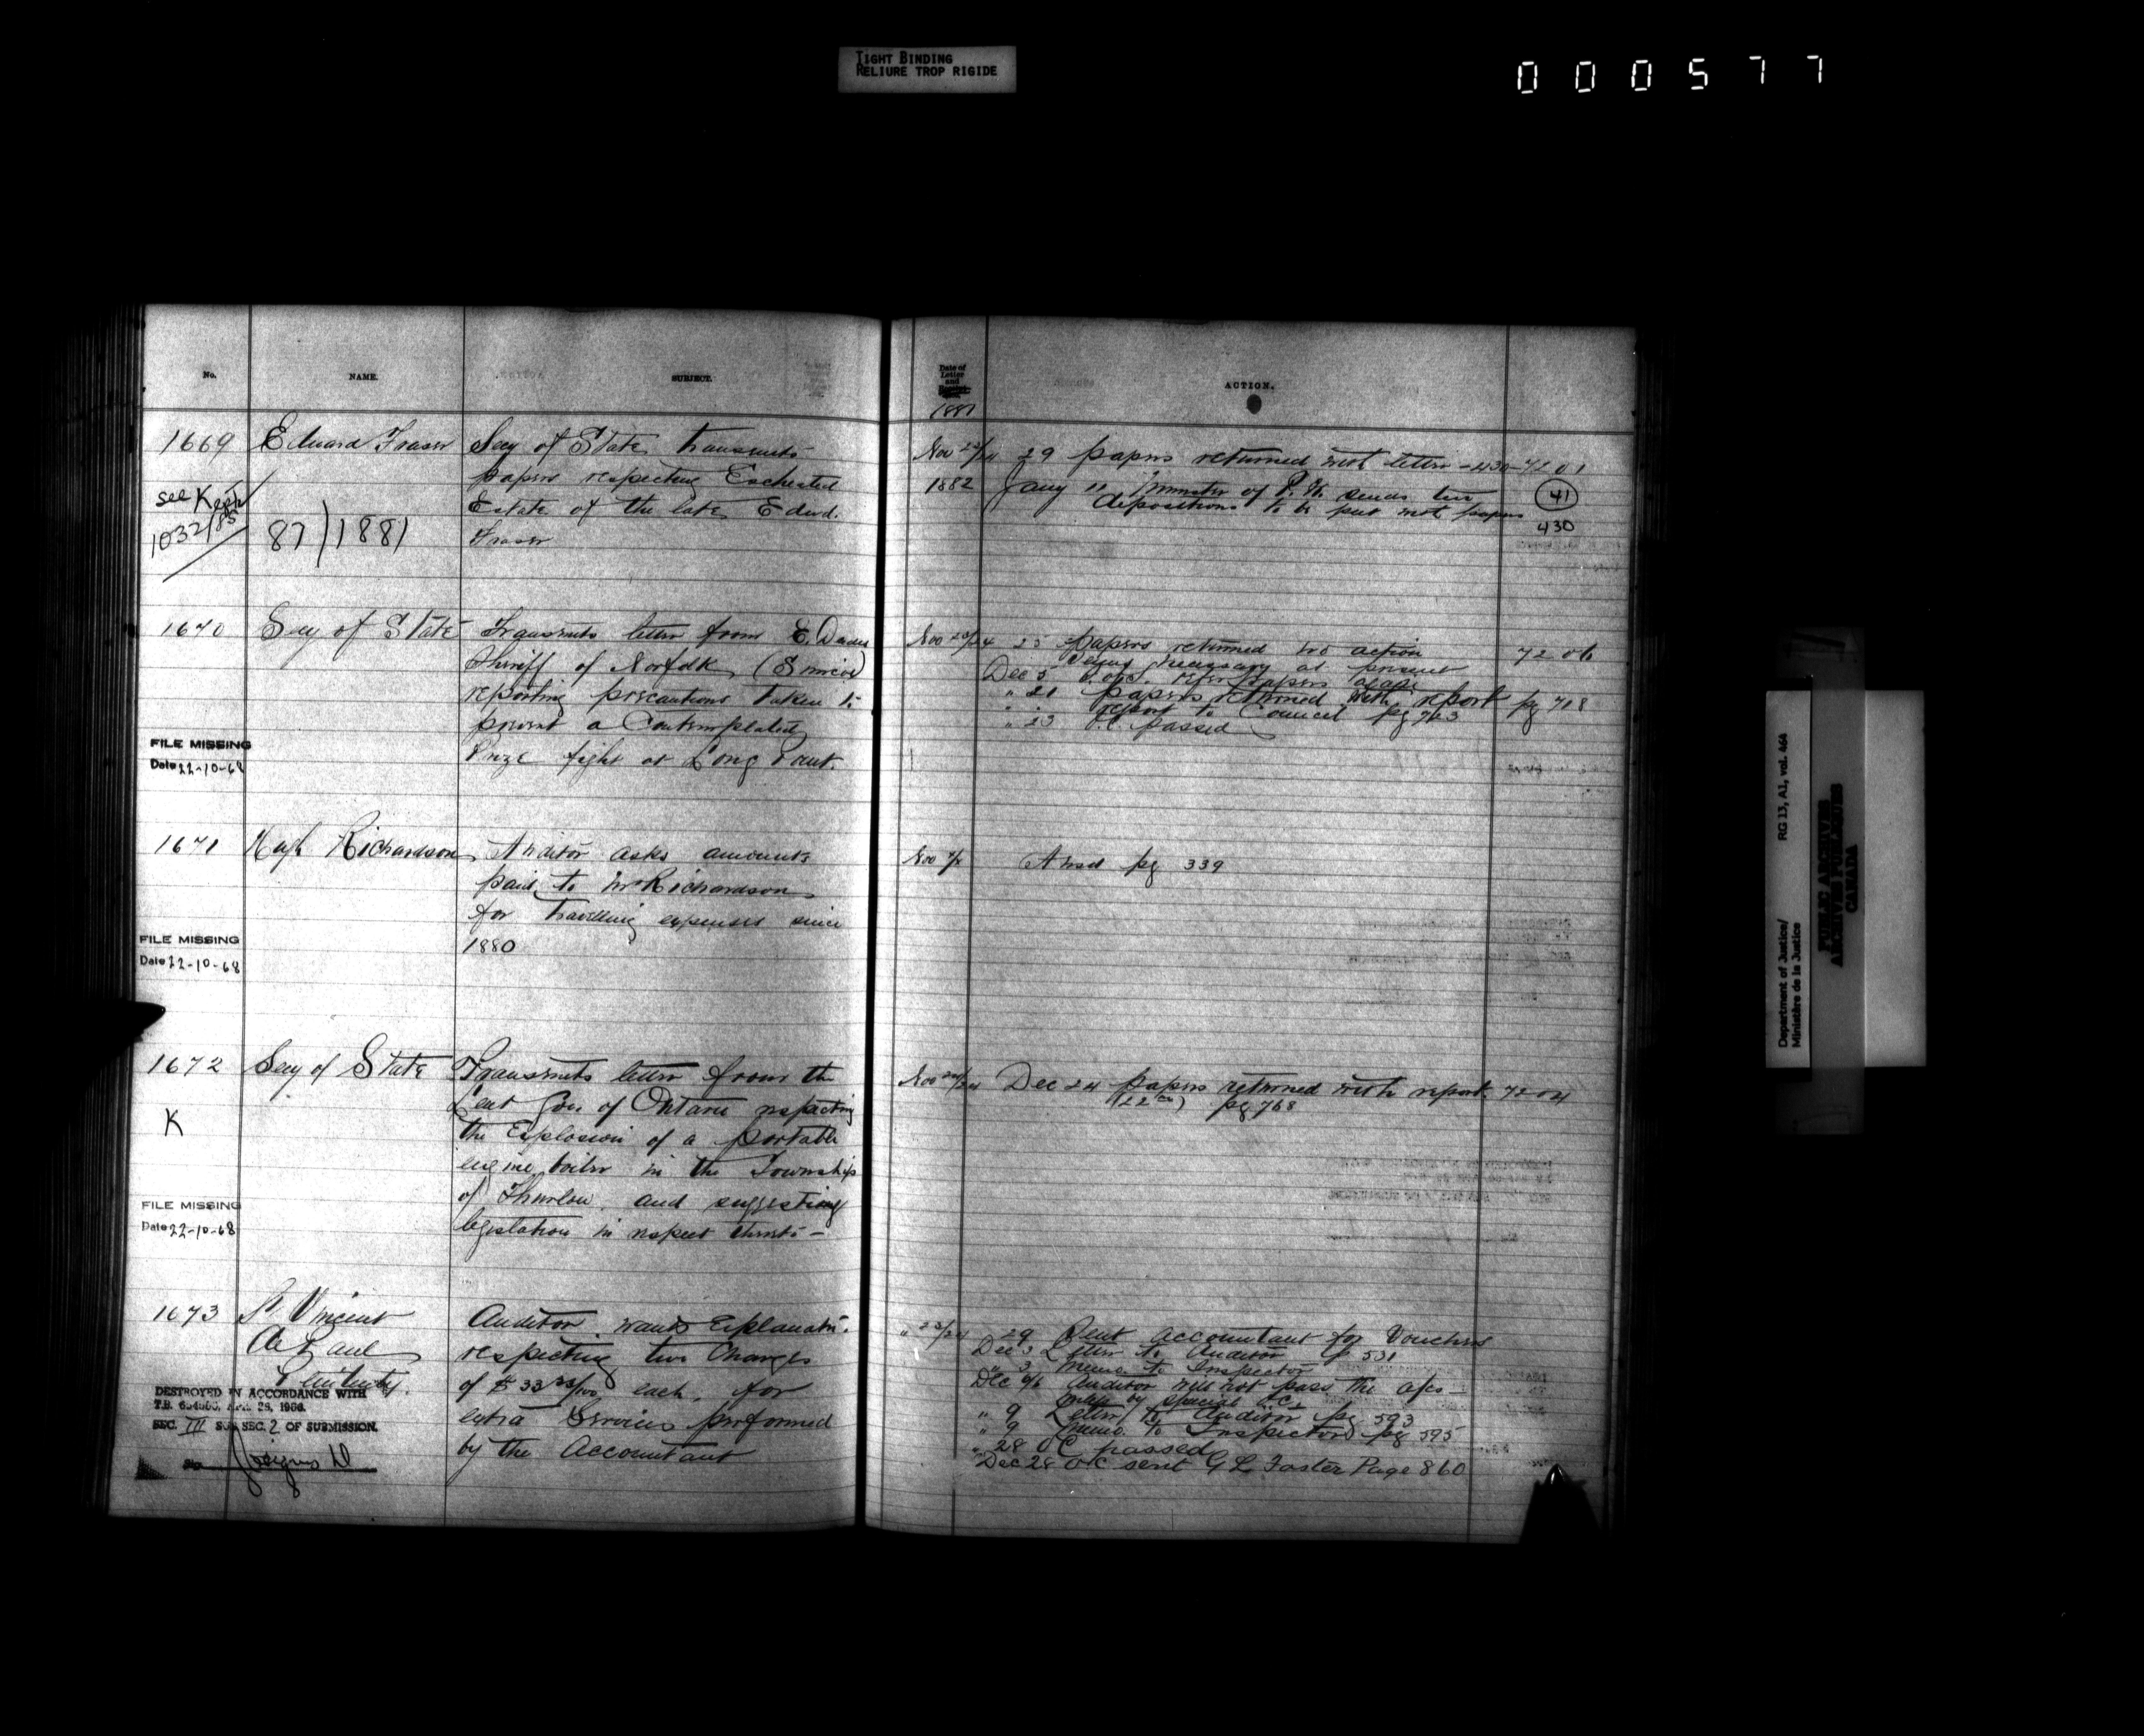 TIGHT BINDING
RELIURE TROP RIGIDE
000577
No.
NAME.
SUBJECT.
Date of
Letter
and
ACTION.
1881
1669
Edward Fraser
Secy of State transmits
papers respecting Escheated
Estate of the late Edwd.
Fraser
see Keep
1032/85
87)1881
Nov 23/24 29 papers returned with letter - 430 - 7201
1882 Jany 11 Minister of P. W. sends two
depositions to be put with papers
41
430
1670
Secy of State
Transmits letter from E. Deedes
Sheriff of Norfolk (Simcoe)
reporting precautions taken to
prevent a Contemplated
Prize fight at Long Point.
FILE MISSING
Date 22-10-68
Nov 23/24 25 papers returned no action 7206
being necessary at present
Dec 5 papers again
" 21 papers returned with report pg 718
" " report to Council pg 763
" 23 O.C. passed
1671
Hugh Richardson
Auditor asks amounts
paid to Mr Richardson
for travelling expenses since
1880
FILE MISSING
Date 22-10-68
Nov
Ansd pg 339
1672
Secy of State
Transmits letter from the
Lieut Gov of Ontario respecting
the Explosion of a portable
engine boiler in the Township
of Thurlow, and suggesting
legislation in respect thereto -
K
FILE MISSING
Date 22-10-68
Nov 24/24 Dec 24 papers returned with report. 7204
(22nd) pg 768
1673
St Vincent
de Paul
Penitenty.
Auditor wants Explanatn.
respecting two Charges
of $33 33/100 each, for
extra Services performed
by the Accountant
DESTROYED IN ACCORDANCE WITH
T.B. APR. 28, 1966.
SEC. III SUB SEC. 2 OF SUBMISSION.
" 23/24 29 Pent accountant for Vouchers
Dec 3 Letter to Auditor p 531
" 3 memo. to Inspector
Dec 6 Auditor will not pass the a/cs -
unless by special O.C.
" 9 Letter to Auditor pg 593
" 9 memo. to Inspector pg 595
" 28 OC passed
Dec 28 OC sent G L Foster Page 860
Department of Justice/
Ministère de la Justice
RG 13, A1, vol. 464
PUBLIC ARCHIVES
ARCHIVES PUBLIQUES
CANADA